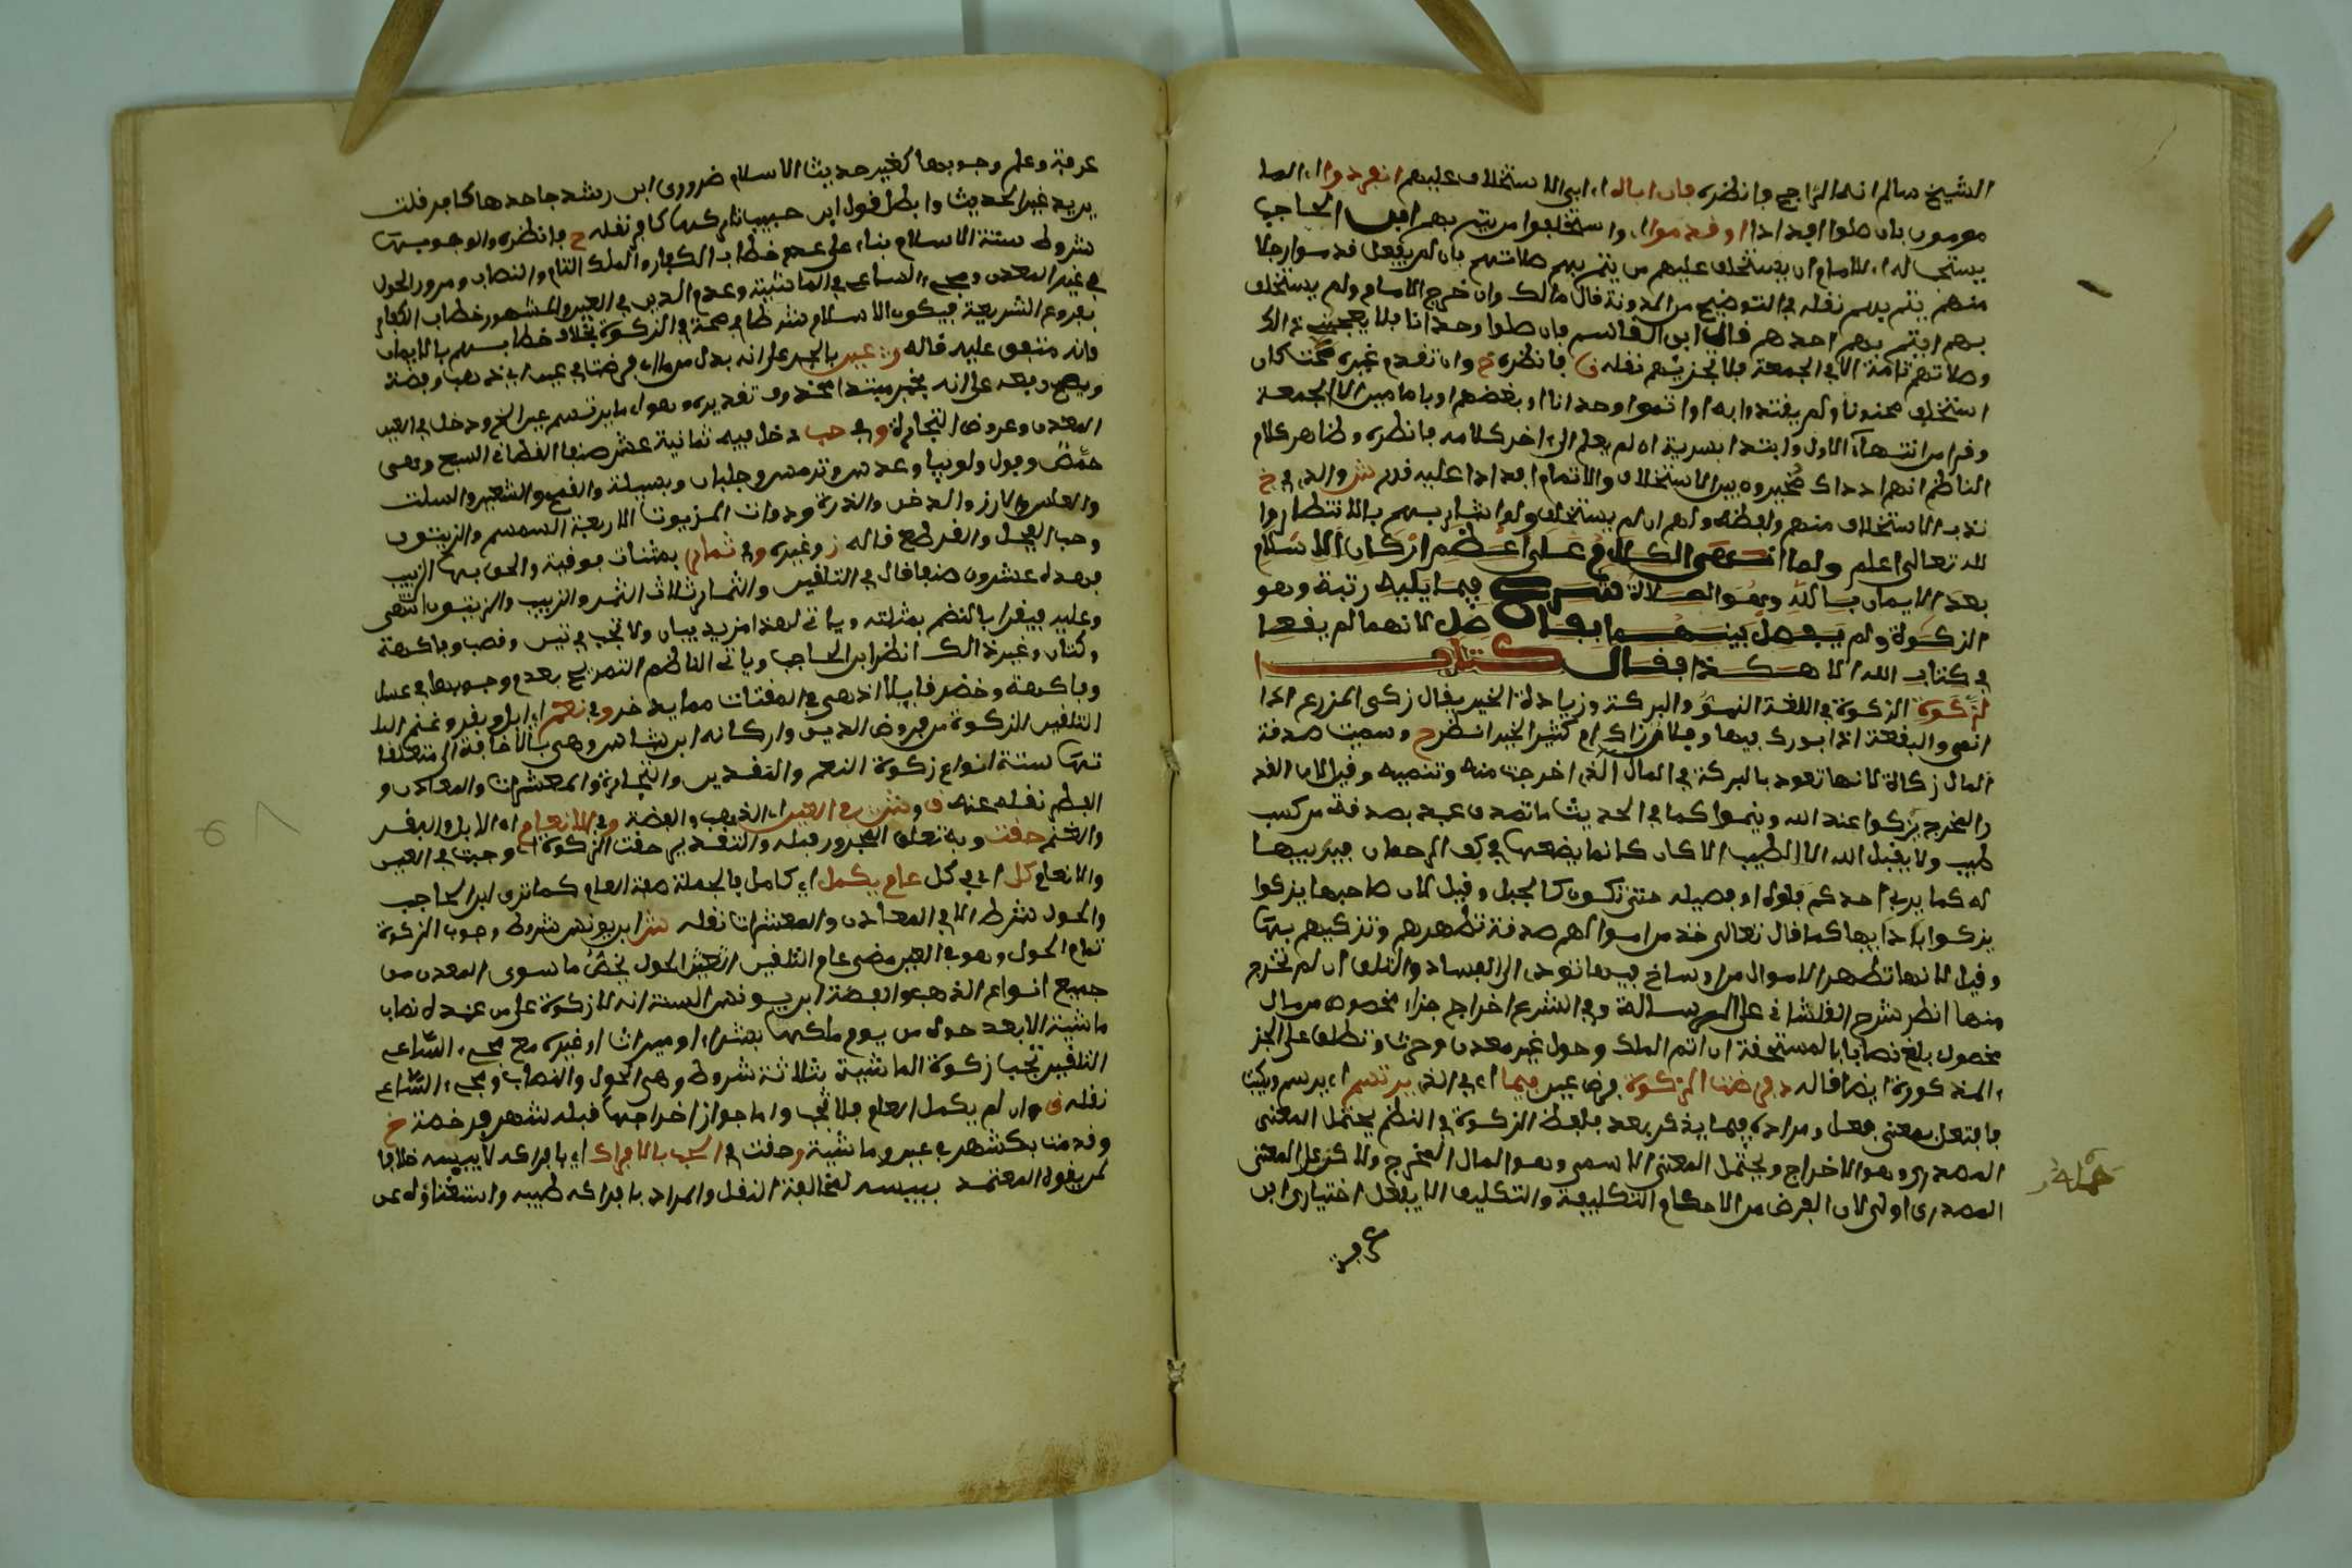 الشيخ سالم انه الراجح وانظره فان اباه اي ابى الاستخلاف عليهم انفردوا اي الما
مومون بان صلوا افذاذا او قدموا اي واستخلفوا من يتم بهم ابن الحاجب
يستحب للامام ان يستخلف عليهم من يتم بهم صلاتهم بان لم يفعل قدموا رجلا
منهم يتم بهم نقله في التوضيح من المدونة قال مالك وان خرج الامام ولم يستخلف
بهم ايتم بهم احدهم قال ابن القاسم فان صلوا وحدانا فلا يعجبني ذالك
وصلاتهم تامة الا في الجمعة فلا تجزيهم نقله ق فانظره خ وان تقدم غيره صحت كان
استخلف مجنونا ولم يقتدوا به او اتموا وحدانا او بعضهم او بامامين الا الجمعة
وقرا من انتهاء الاول وابتدا بسرية ان لم يعلم الى اخر كلامه فانظره وظاهر كلام
الناظم انهم اذ ذاك مخيرون بين الاستخلاف والاتمام افذاذا عليه قدم ش والذي في خ
ندب الاستخلاف منهم ولفظه ولهم ان لم يستخلف ولو اشار بهم بالانتظار وا
لله تعالى اعلم ولما انقضى الكلام على اعظم اركان الاسلام
بعد الايمان بالله وهو الصلاة شرع فيما يليه رتبة وهو
الزكوة ولم يفصل بينهما بفاصل لانهما لم يقعا
في كتاب الله الا هكذا فقال كتاب
الزكوة الزكوة في اللغة النمو والبركة وزيادة الخير يقال زكى الزرع اذا
انمى والبقعة اذا بورك فيها وفلان زاك اي كثير الخير انظر ح وسميت صدقة
المال زكاة لانها تعود بالبركة في المال الذي اخرجت منه وتنميه وقيل لان القد
ر المخرج يزكوا عند الله وينموا كما في الحديث ما تصدق عبد بصدقة من كسب
طيب ولا يقبل الله الا الطيب الا كان كانما يضعها في كف الرحمان فيربيها
له كما يربي احدكم فلوه او فصيله حتى تكون كالجبل وقيل لان صاحبها يزكوا
يزكوا باداءيها كما قال تعالى خذ من اموالهم صدقة تطهرهم وتزكيهم بها
وقيل لانها تطهر الاموال من اوساخ فيها تؤدي الى الفساد والتلف ان لم تخرج
منها انظر شرح القلشاني على الرسالة وفي الشرع اخراج جزء مخصوص من مال
مخصوص بلغ نصابا بالمستحقة ان اتم الملك وحول غير معدن وحرث وتطلق على الجز
ء المذكورة ايضا قاله د فرضت الزكوة فرض عين فيما اي في الذي يرتسم اي يرسم ويكتب
فافتعل بمعنى فعل ومراده فيما يذكر بعد فلفظ الزكوة في النظم يحتمل المعنى
المصدري وهو الاخراج ويحتمل المعنى الاسمي وهو المال المخرج ولاكن على المعنى
المصدري اولى لان الفرض من الاحكام التكليفية والتكليف الا بفعل اختياري ابن
عرفة
عرفة وعلم وجوبها كغير حديث الاسلام ضروري ابن رشد جاحدها كافر قلت
يريد غير الحديث وابطل قول ابن حبيب تاركها كافر نقله ح فانظره والوجوبها
شروط ستة الاسلام بناء على عدم خطاب الكفار والملك التام والنصاب ومرور الحول
في غير المعدن ومجيء الساعي في الماشية وعدم الدين في العين والمشهور خطاب الكفار
بفروع الشريعة فيكون الاسلام شرطا في صحة في الزكوة بخلاف خطابهم بالايمان
فانه متفق عليه قاله ش عين بالجر على انه بدل من ما اي فرضت في عين اي ذهب وفضة
ويصح رفعه على انه خبر مبتدا محذوف تقديره وهو اي ما يرتسم عين الخ ودخل في العين
المعدن وعروض التجارة وفي حب دخل فيه ثمانية عشر صنفا القطاني السبع وهي
حمص وفول ولوبيا وعدس وترمس وجلبان وبسيلة والقمح والشعير والسلت
والعلس والارز والدخن والذرة وذوات الزيوت الاربعة السمسم والزيتون
وحب الفجل والقرطم قاله ز وغيره وفي ثمار بمثناة فوقية والحق بها الزبيب
فهذه عشرون صنفا قال في التلقين والثمار ثلاث الثمر والزبيب والزيتون انتهى
وعليه فيقرا بالنضم بمثلثة وياتى لهذا مزيد بيان ولا تجب في تين وقصب وفاكهة
وكتان وغير ذالك انظر ابن الحاجب وياتى الناظم التصريح بعدم وجوبها في عسل
وفاكهة وخضر قايلا اذ هي في المقتات مما يدخر وفي نعم اي ابل وبقر وغنم الا
التلقين الزكوة من فروض الدين واركانه ابن شاس وهي بالاضافة الى متعلقا
تها ستة انواع زكوة النعم والنقدين والتجارة والمعشرات والمعادن و
الفطر نقله عنه ق وش في العين اي الذهب والفضة وفي الانعام اي الابل والبقر
والغنم حقت وبه تعلق المجرور قبله والتقدير حقت الزكوة اي وجبت في العين
والانعام كل اي في كل عام يكمل اي كامل فالجملة صفة العام كما ترى ابن الحاجب
والحول شرط الا في المعادن والمعشرات نقله ش ابن يونس شروط وجوب الزكوة
تمام الحول وهو في العين مضى عام التلقين اعتبار الحول يخص ما سوى المعدن من
جميع انواع الذهب والفضة ابن يونس السنة انه لا زكوة على من عنده نصاب
ماشية الا بعد حول من يوم ملكها بشراء او ميراث او غيره مع مجيء الساعي
التلقين تجب زكوة الماشية بثلاثة شروط وهي الحول والنصاب ومجيء الساعي
نقله ق وان لم يكمل العام فلا تجب واما جواز اخراجها قبله شهر فرخصة خ
وقدمت بكشهر في عين وماشية وحقت في الحب بالافراك اي بافراكه لا يبسه خلافا
لمن يقول المعتمد بيبسه لمخالفة النقل والمراد بافراكه طيبه واستغناؤه عن